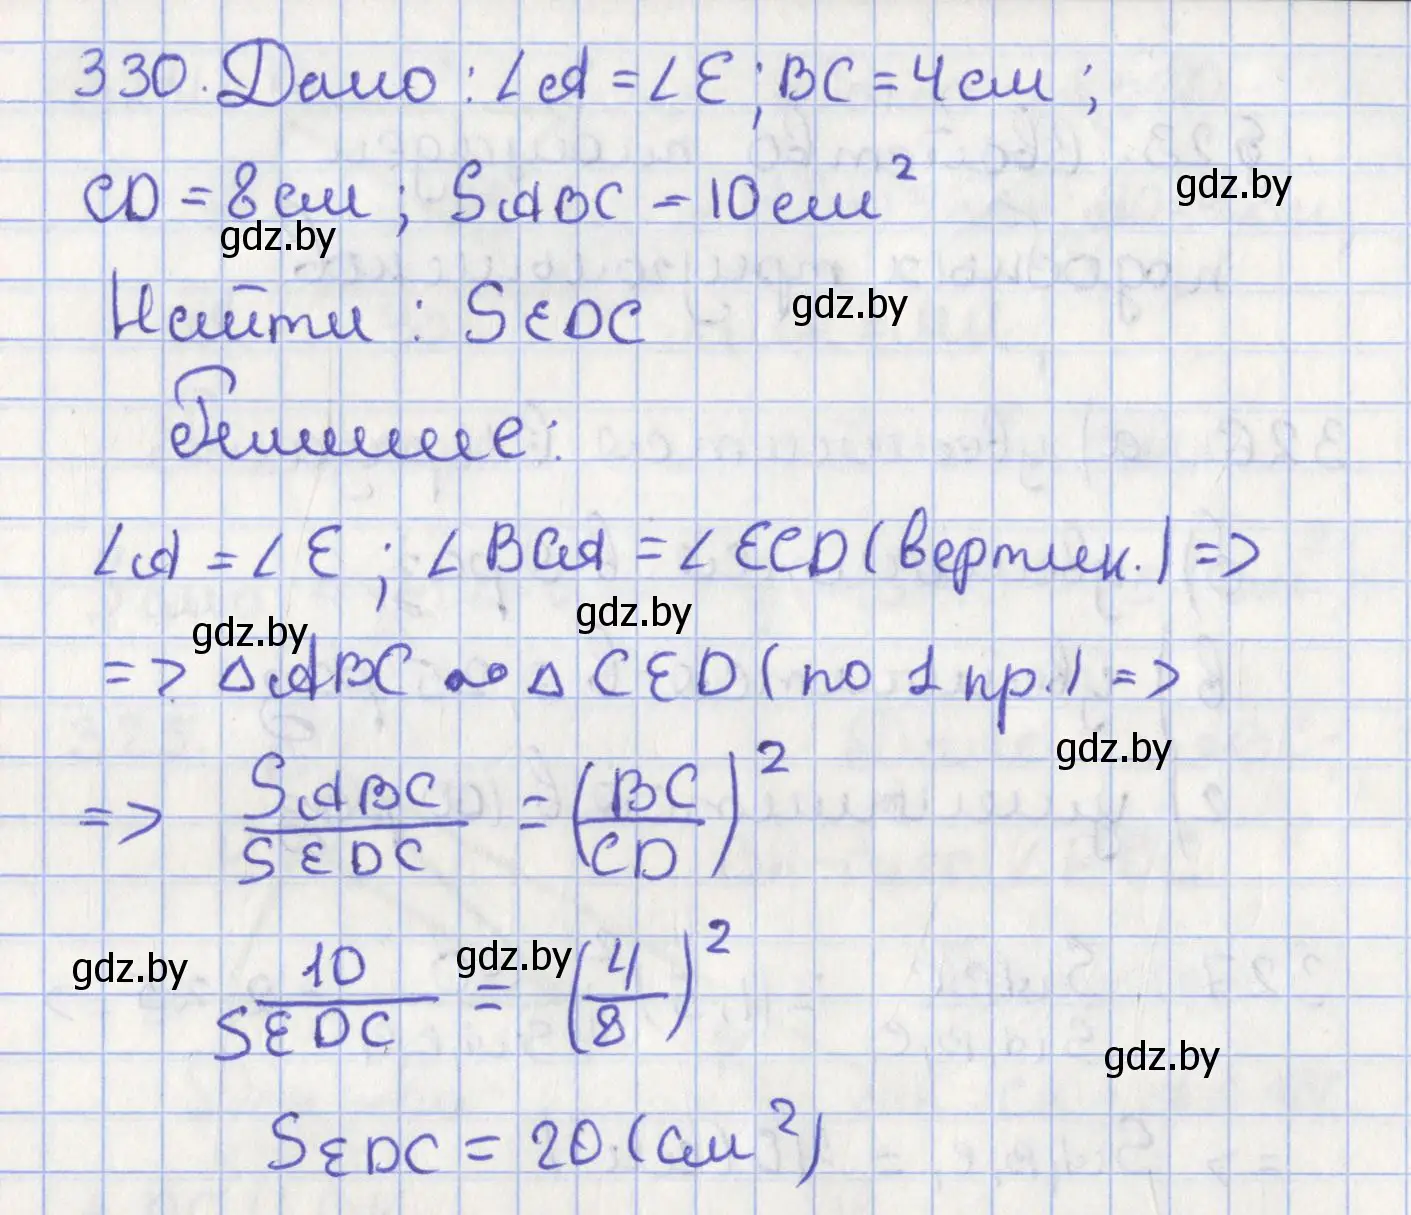 330. Дано: ∠A = ∠E; BC = 4 см;
CD = 8 см; SABC = 10 см²
gdz.by
gdz.by
Найти: SEDC
gdz.by
Решение:
∠A = ∠E; ∠BCA = ∠ECD (вертик.) =>
gdz.by
gdz.by
=> △ABC ∾ △CED (по 1 пр.) =>
gdz.by
=> SABC/SEDC = (BC/CD)²
gdz.by
gdz.by
10/SEDC = (4/8)²
gdz.by
SEDC = 20 (см²)